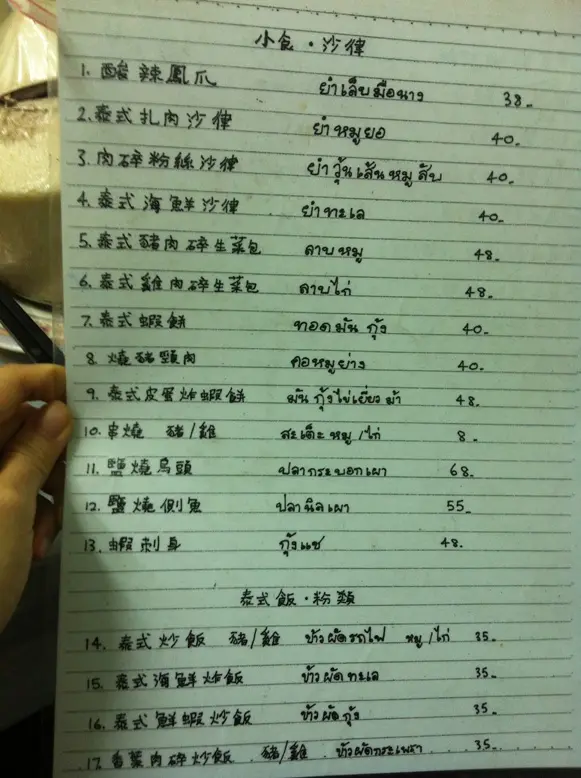 小食・沙律
1. 酸辣鳳爪 ยำเล็บมือนาง 38.-
2. 泰式扎肉沙律 ยำหมูยอ 40.-
3. 肉碎粉絲沙律 ยำวุ้นเส้นหมูสับ 40.-
4. 泰式海鮮沙律 ยำทะเล 40.-
5. 泰式豬肉碎生菜包 ลาบหมู 48.-
6. 泰式雞肉碎生菜包 ลาบไก่ 48.-
7. 泰式蝦餅 ทอดมันกุ้ง 40.-
8. 燒豬頸肉 คอหมูย่าง 40.-
9. 泰式皮蛋炸蝦餅 มันกุ้งไข่เยี่ยวม้า 48.-
10. 串燒 豬/雞 สะเต๊ะหมู/ไก่ 8.-
11. 鹽燒烏頭 ปลากระบอกเผา 68.-
12. 鹽燒側魚 ปลานิลเผา 55.-
13. 蝦刺身 กุ้งแช่ 48.-
泰式飯・粉類
14. 泰式炒飯 豬/雞 ข้าวผัดรถไฟ หมู/ไก่ 35.-
15. 泰式海鮮炸飯 ข้าวผัดทะเล 35.-
16. 泰式鮮蝦炒飯 ข้าวผัดกุ้ง 35.-
17. 香菜肉碎炒飯 豬/雞 ข้าวผัดกระเพรา 35.-